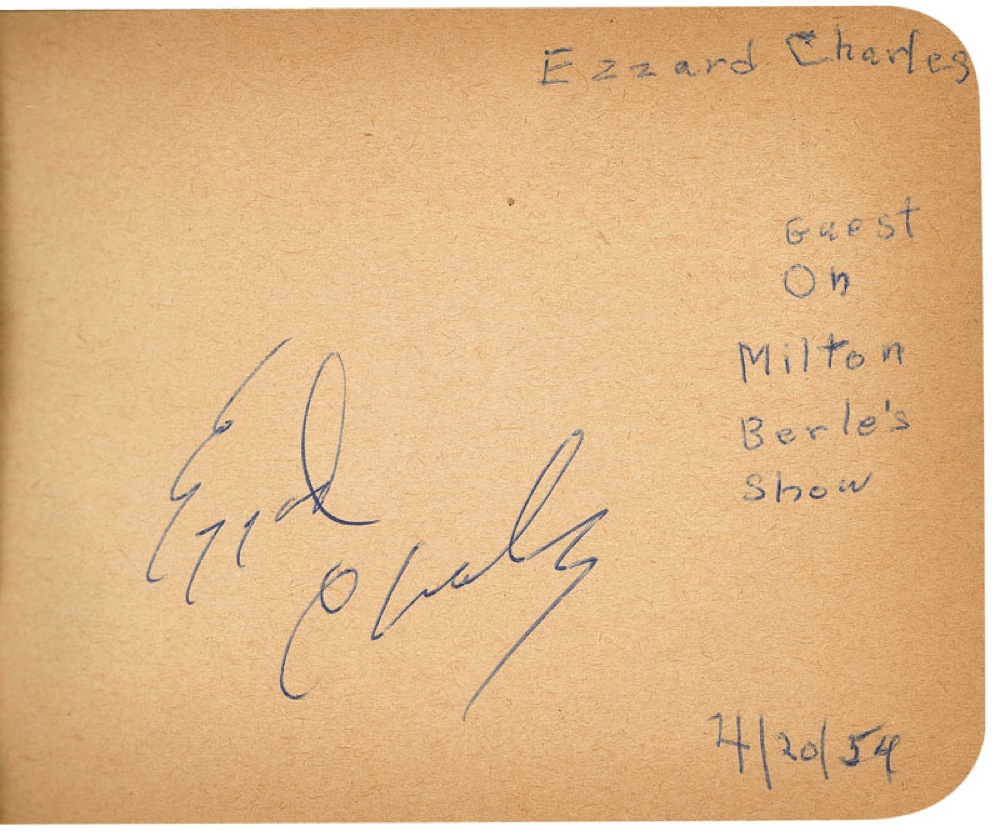 Ezzard Charles
Guest
On
Milton
Berle's
Show
Ezzard
Charles
4/20/54